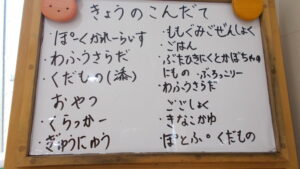 きょうのこんだて
・ぽーくかれーらいす
・わふうさらだ
・くだもの(添)
おやつ
・くらっかー
・ぎゅうにゅう
・ももぐみごぜんしょく
・ごはん
・ぶたひきにくとかぼちゃの
にもの ・ぶろっこりー
・わふうさらだ
ごごしょく
・きなこかゆ
・ぽとふ・くだもの